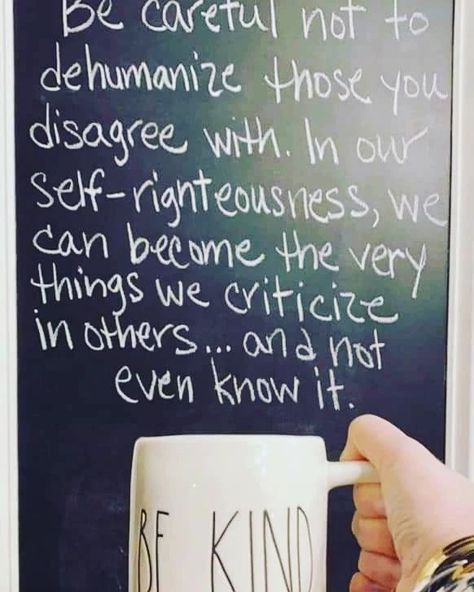 Be careful not to
dehumanize those you
disagree with. In our
self-righteousness, we
can become the very
things we criticize
in others... and not
even know it.
BE KIND